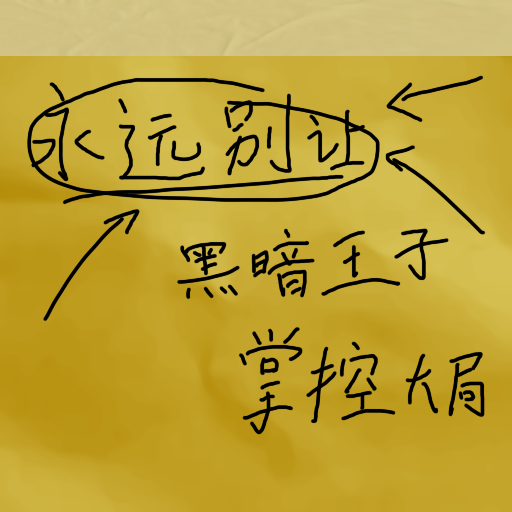 永远别让
黑暗王子
掌控大局